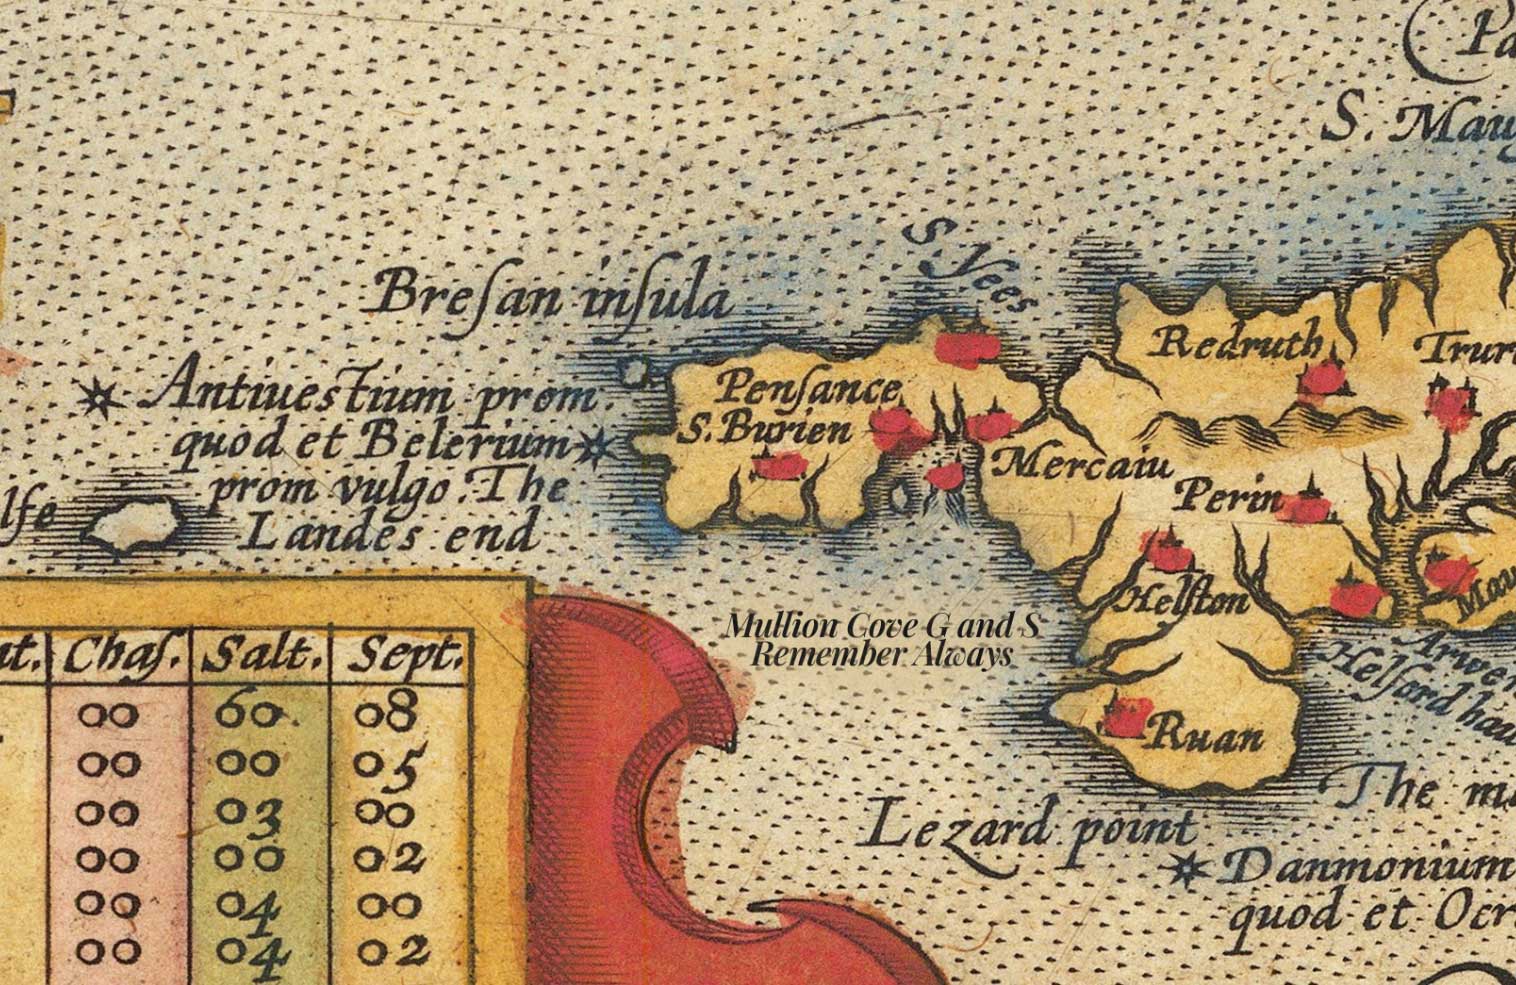 S. Mau
S. Yees
Breſan inſula
Redruth
Penſance
Antiuestium prom.
quod et Belerium
prom vulgo. The
Landes end
S. Burien
Mercaiu
Perin
lfe
Helſton
Mullion Cove G and S
Remember Always
Chaſ. Salt. Sept.
00 60. 08
00 00 05
00 03 00
00 00 02
00 04 00
00 04 02
Ruan
Helford hau
The
Lezard point
Danmonium
quod et Ocr